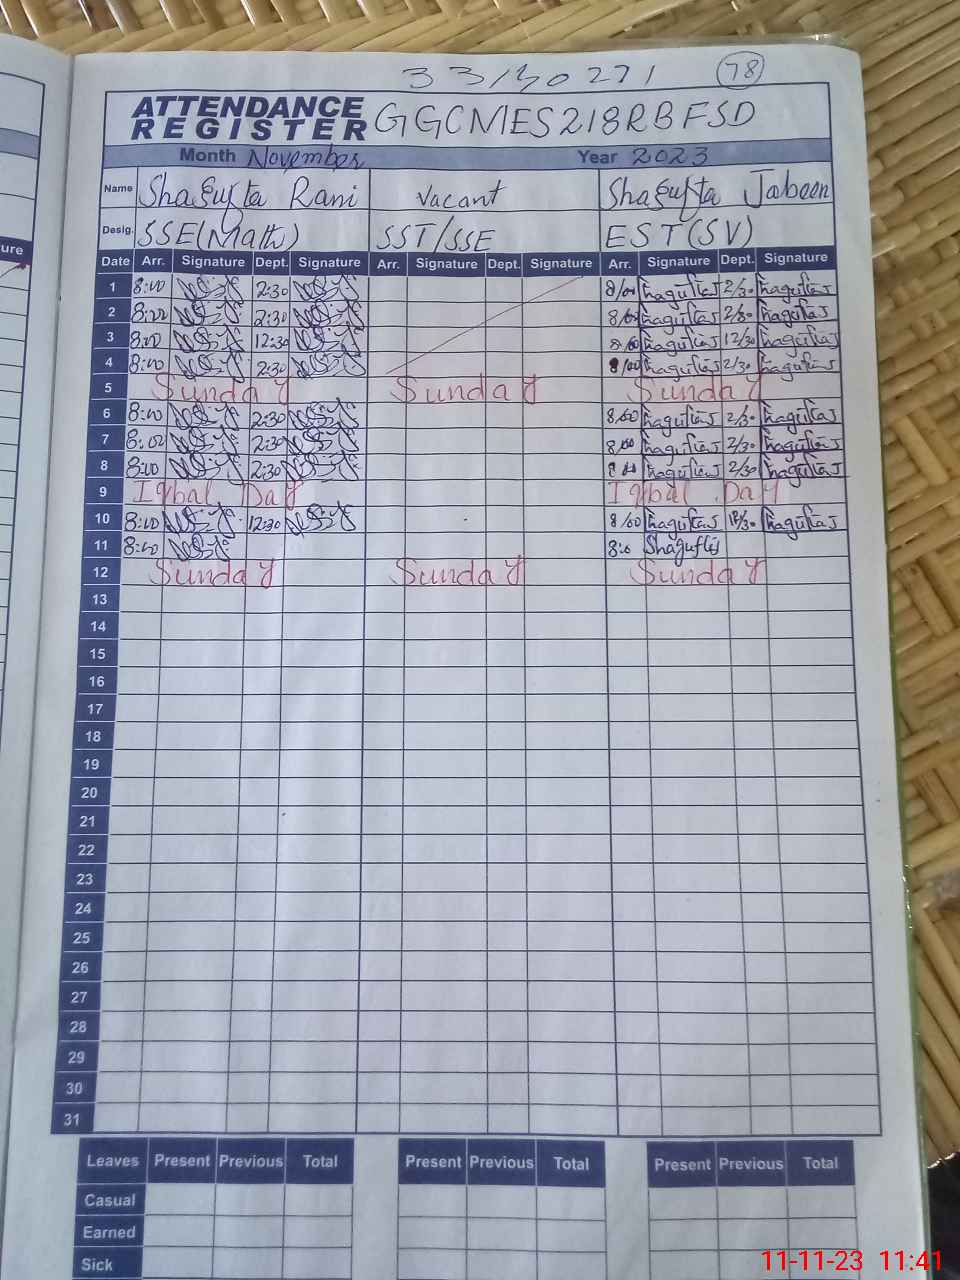 33130271 78
ATTENDANCE REGISTER GGCMES218RBFSD
Month November Year 2023
Name Shagufta Rani Vacant Shagufta Jabeen
Desig. SSE(Math) SST/SSE EST(SV)
ure
Date Arr. Signature Dept. Signature Arr. Signature Dept. Signature Arr. Signature Dept. Signature
1 8:00 2:30 8/00 2/30
2 8:00 2:30 8/00 2/30
3 8:00 12:30 8/00 12/30
4 8:00 2:30 8/00 2/30
5 Sunday Sunday Sunday
6 8:00 2:30 8/00 2/30
7 8:00 2:30 8/00 2/30
8 8:00 2:30 8/00 2/30
9 Iqbal Day Iqbal Day
10 8:00 12:30 8/00 12/30
11 8:00 8:0
12 Sunday Sunday Sunday
13
14
15
16
17
18
19
20
21
22
23
24
25
26
27
28
29
30
31
Leaves Present Previous Total Present Previous Total Present Previous Total
Casual
Earned
Sick
11-11-23 11:41